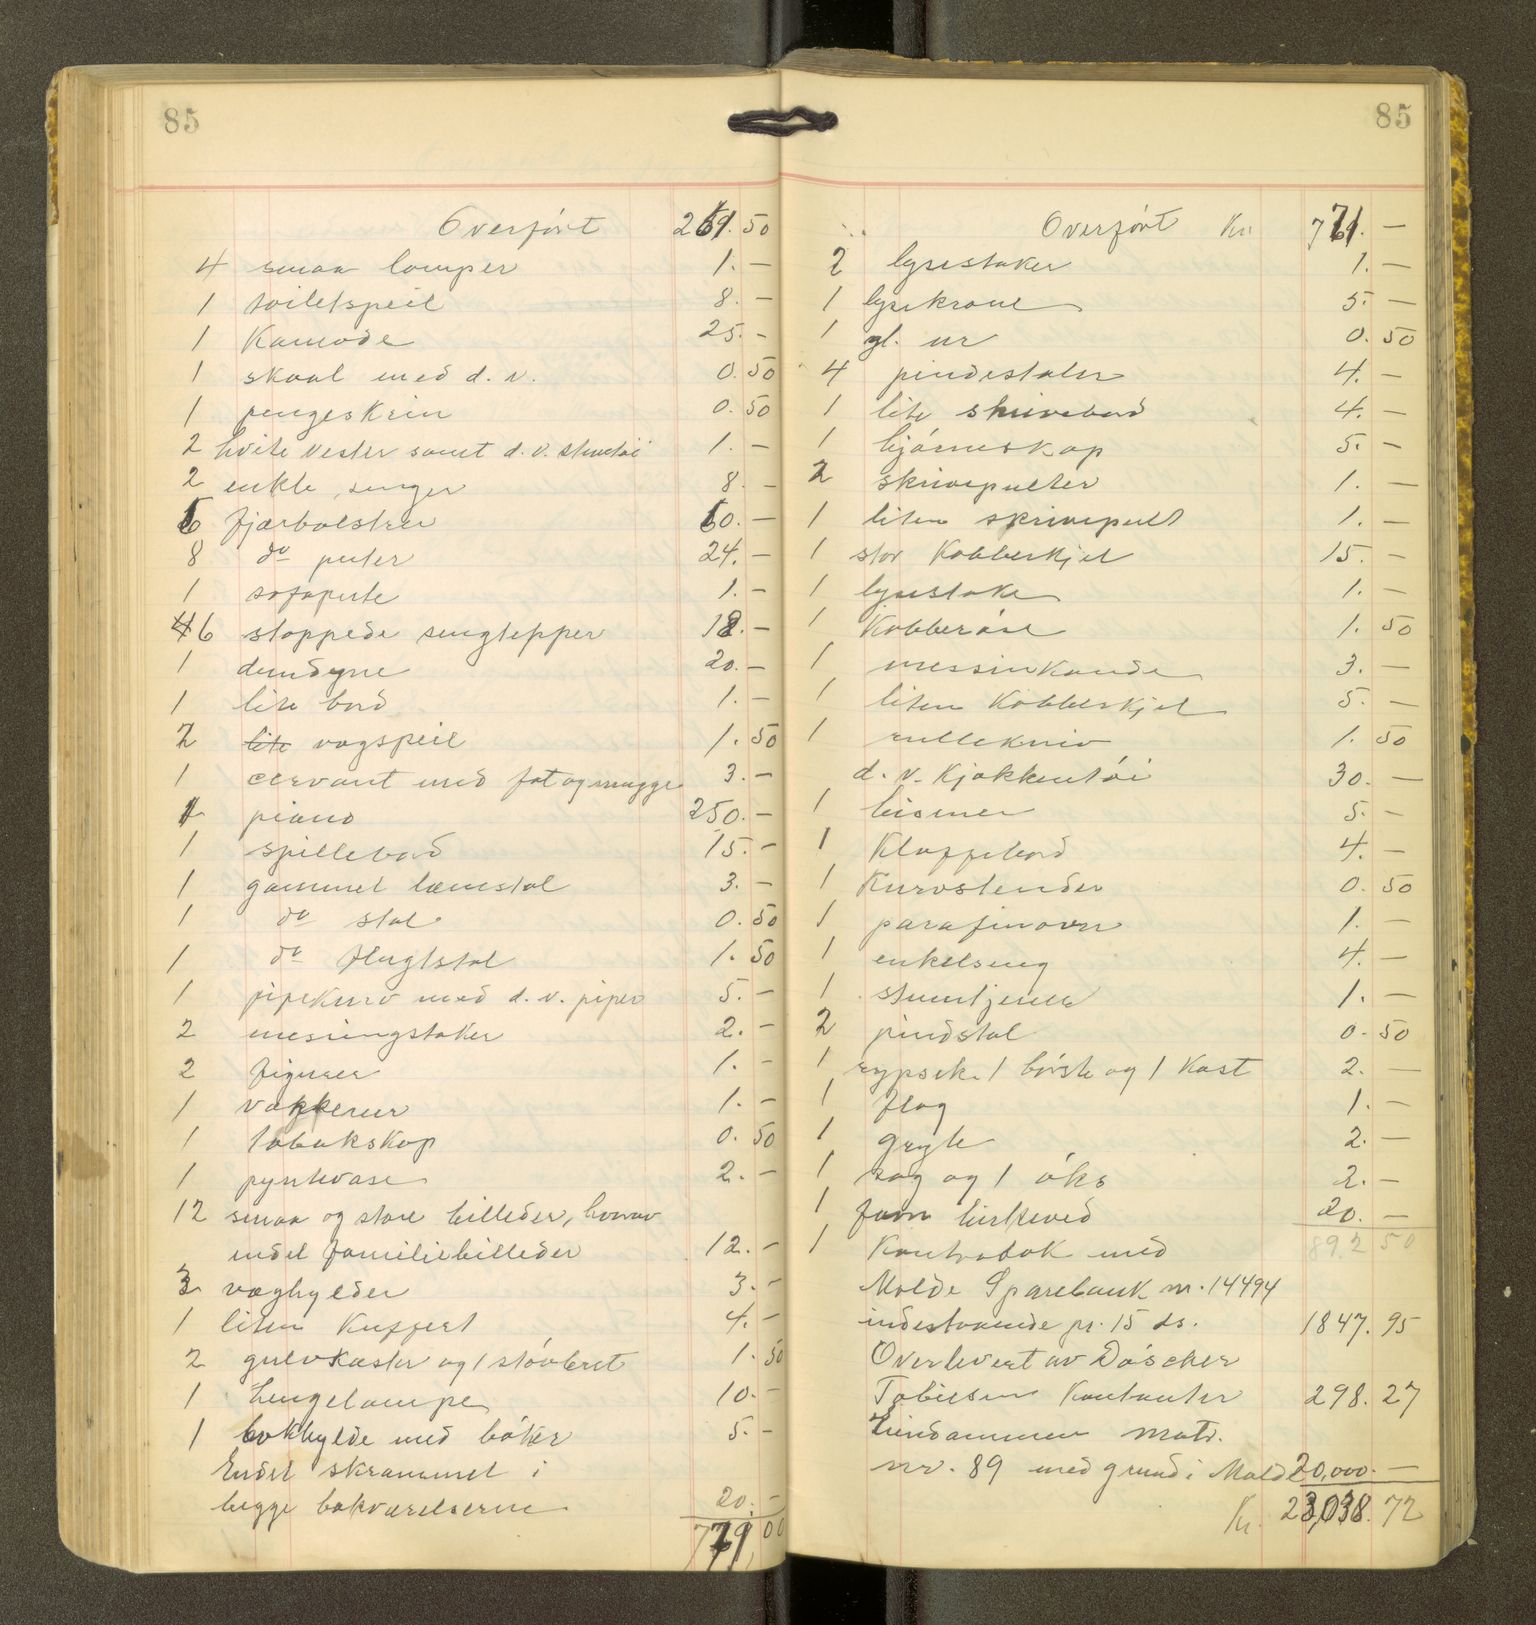 85
Overført 50
4 smaa lamper 1. —
1 toiletspeil 8. —
1 Kamode 25. —
1 skaal med d. v. 0. 50
1 pengeskrin 0. 50
2 hvite vester samt d. v. stentøi 1. —
2 enkle senger 8. —
fjærbolstrer
8 do puter 24. —
1 sofapute 1. —
6 stoppede sengtepper —
1 dundyne 20. —
1 lite bord 1. —
2 lite vægspeil 1. 50
1 cervant med fat og mugge 3. —
1 piano 250. —
1 spillebord 15. —
1 gammel lænstol 3. —
1 do stol 0. 50
1 do flugtstol 1. 50
1 pipekurv med d. v. piper 5. —
2 mesingstaker 2. —
2 figurer 1. —
1 vækkerur 1. —
1 tobakskop 0. 50
1 pyntevase 2. —
12 smaa og store billeder, hvorav
endel familiebilleder 12. —
3 væghylder 3. —
1 liten Kuffert 4. —
2 gulvkoster og 1 støvbret 1. 50
1 hengelampe 10. —
1 bokhylde med bøker 5. —
Endel skrammel i
begge bakværelserne 20. —
771, 00
85
Overført Kr. 771. —
2 lysestaker 1. —
1 lysekrone 5. —
1 gl. ur 0. 50
4 pindestoler 4. —
1 lite skrivebord 4. —
1 hjørneskap 5. —
2 skrivepulter 1. —
1 liten skrivepult 1. —
1 stor Kobberkjel 15. —
1 lysestake 1. —
1 Kobberøse 1. 50
1 messinkande 3. —
1 liten Kobberkjel 5. —
1 rullekniv 1. 50
d. v. Kjøkkentøi 30. —
1 bismer 5. —
1 Klaffebord 4. —
1 Kurvstender 0. 50
1 parafinovn 1. —
1 enkelseng 4. —
1 stumtjener 1. —
2 pindstol 0. 50
1 rypsek. 1 børste og 1 Kost 2. —
1 flag 1. —
1 gryte 2. —
1 sag og 1 øks 2. —
1 favn birkeved 20. —
892 50
1 Kontrabok med
Molde Sparebank nr. 14494
indestaaende pr. 15 ds. 1847. 95
Overlevert av Døscher
Tobiesen Kontanter 298. 27
Eiendommen matr.
nr. 89 med grund i Molde 20,000. —
Kr. 23,038. 72